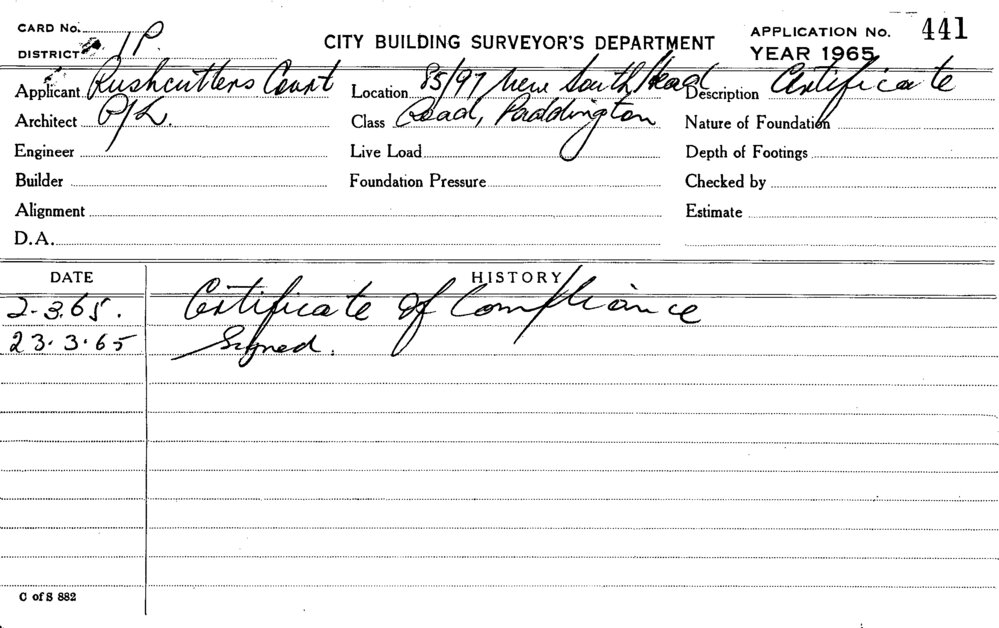 CARD No. 1P. CITY BUILDING SURVEYOR'S DEPARTMENT APPLICATION No. 441
DISTRICT YEAR 1965
Applicant Rushcutters Court Location 85/97 New South Head Description Certificate
Architect P/L. Class Road, Paddington Nature of Foundation
Engineer Live Load Depth of Footings
Builder Foundation Pressure Checked by
Alignment Estimate
D.A.
DATE HISTORY
2-3.65. Certificate of Compliance
23.3.65 Signed.
C of S 882